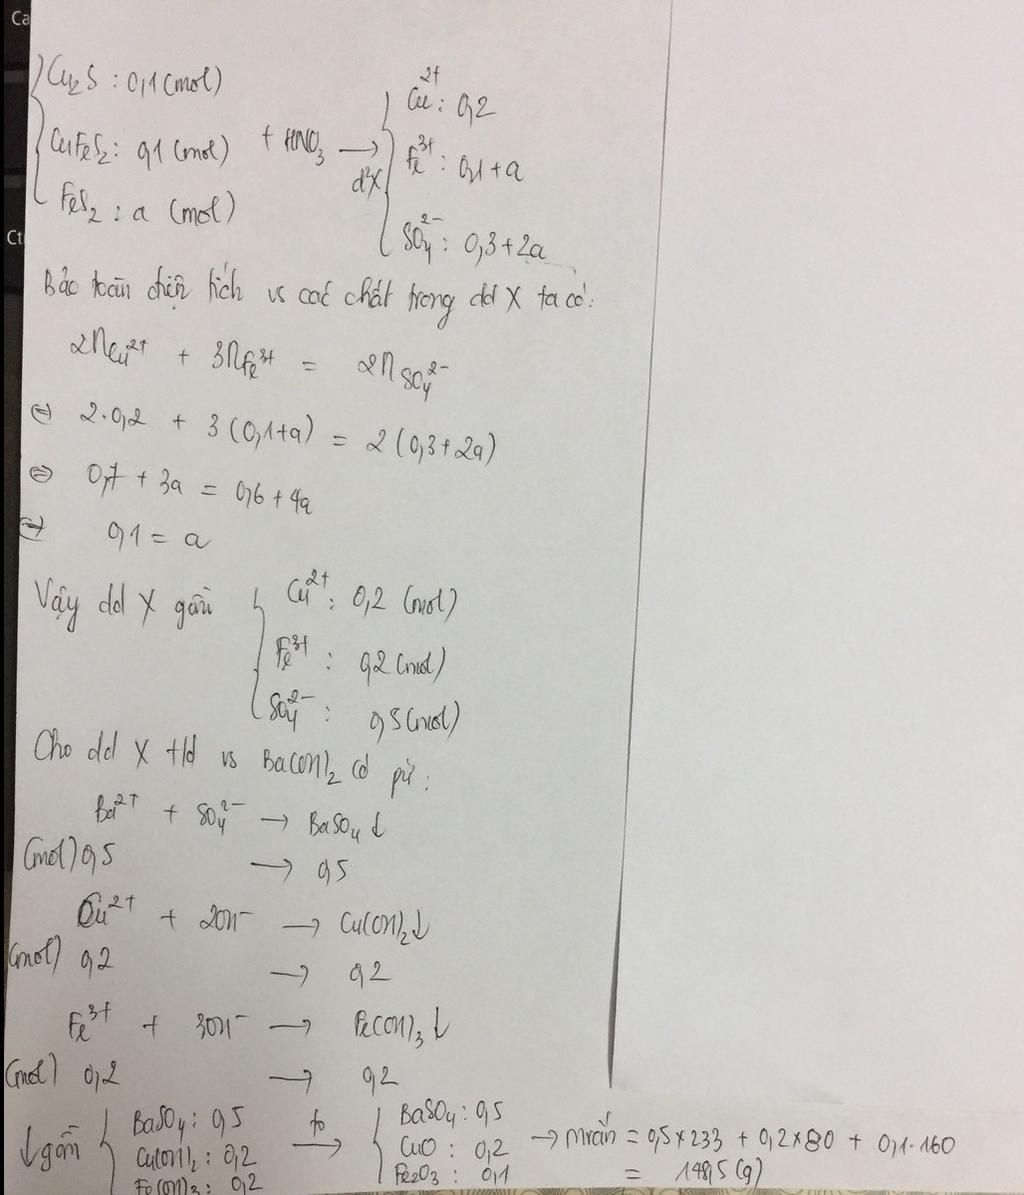 Ca
Ct
Cu₂S : 0,1 (mol)
CuFeS₂ : 0,1 (mol)
FeS₂ : a (mol)
+ HNO₃ → d²X
Cu²⁺ : 0,2
Fe³⁺ : 0,1 + a
SO₄²⁻ : 0,3 + 2a
Bảo toàn điện tích vs các chất trong dd X ta có:
2n Cu²⁺ + 3n Fe³⁺ = 2n SO₄²⁻
⇔ 2.0,2 + 3(0,1+a) = 2(0,3+2a)
⇔ 0,7 + 3a = 0,6 + 4a
⇔ 0,1 = a
Vậy dd X gồm
Cu²⁺ : 0,2 (mol)
Fe³⁺ : 0,2 (mol)
SO₄²⁻ : 0,5 (mol)
Cho dd X t/d vs Ba(OH)₂ có pứ :
Ba²⁺ + SO₄²⁻ → BaSO₄ ↓
(mol) 0,5 → 0,5
Cu²⁺ + 2OH⁻ → Cu(OH)₂ ↓
(mol) 0,2 → 0,2
Fe³⁺ + 3OH⁻ → Fe(OH)₃ ↓
(mol) 0,2 → 0,2
↓ gồm
BaSO₄ : 0,5
Cu(OH)₂ : 0,2
Fe(OH)₃ : 0,2
t° →
BaSO₄ : 0,5
CuO : 0,2
Fe₂O₃ : 0,1
→ m rắn = 0,5 × 233 + 0,2 × 80 + 0,1 . 160
= 148,5 (g)